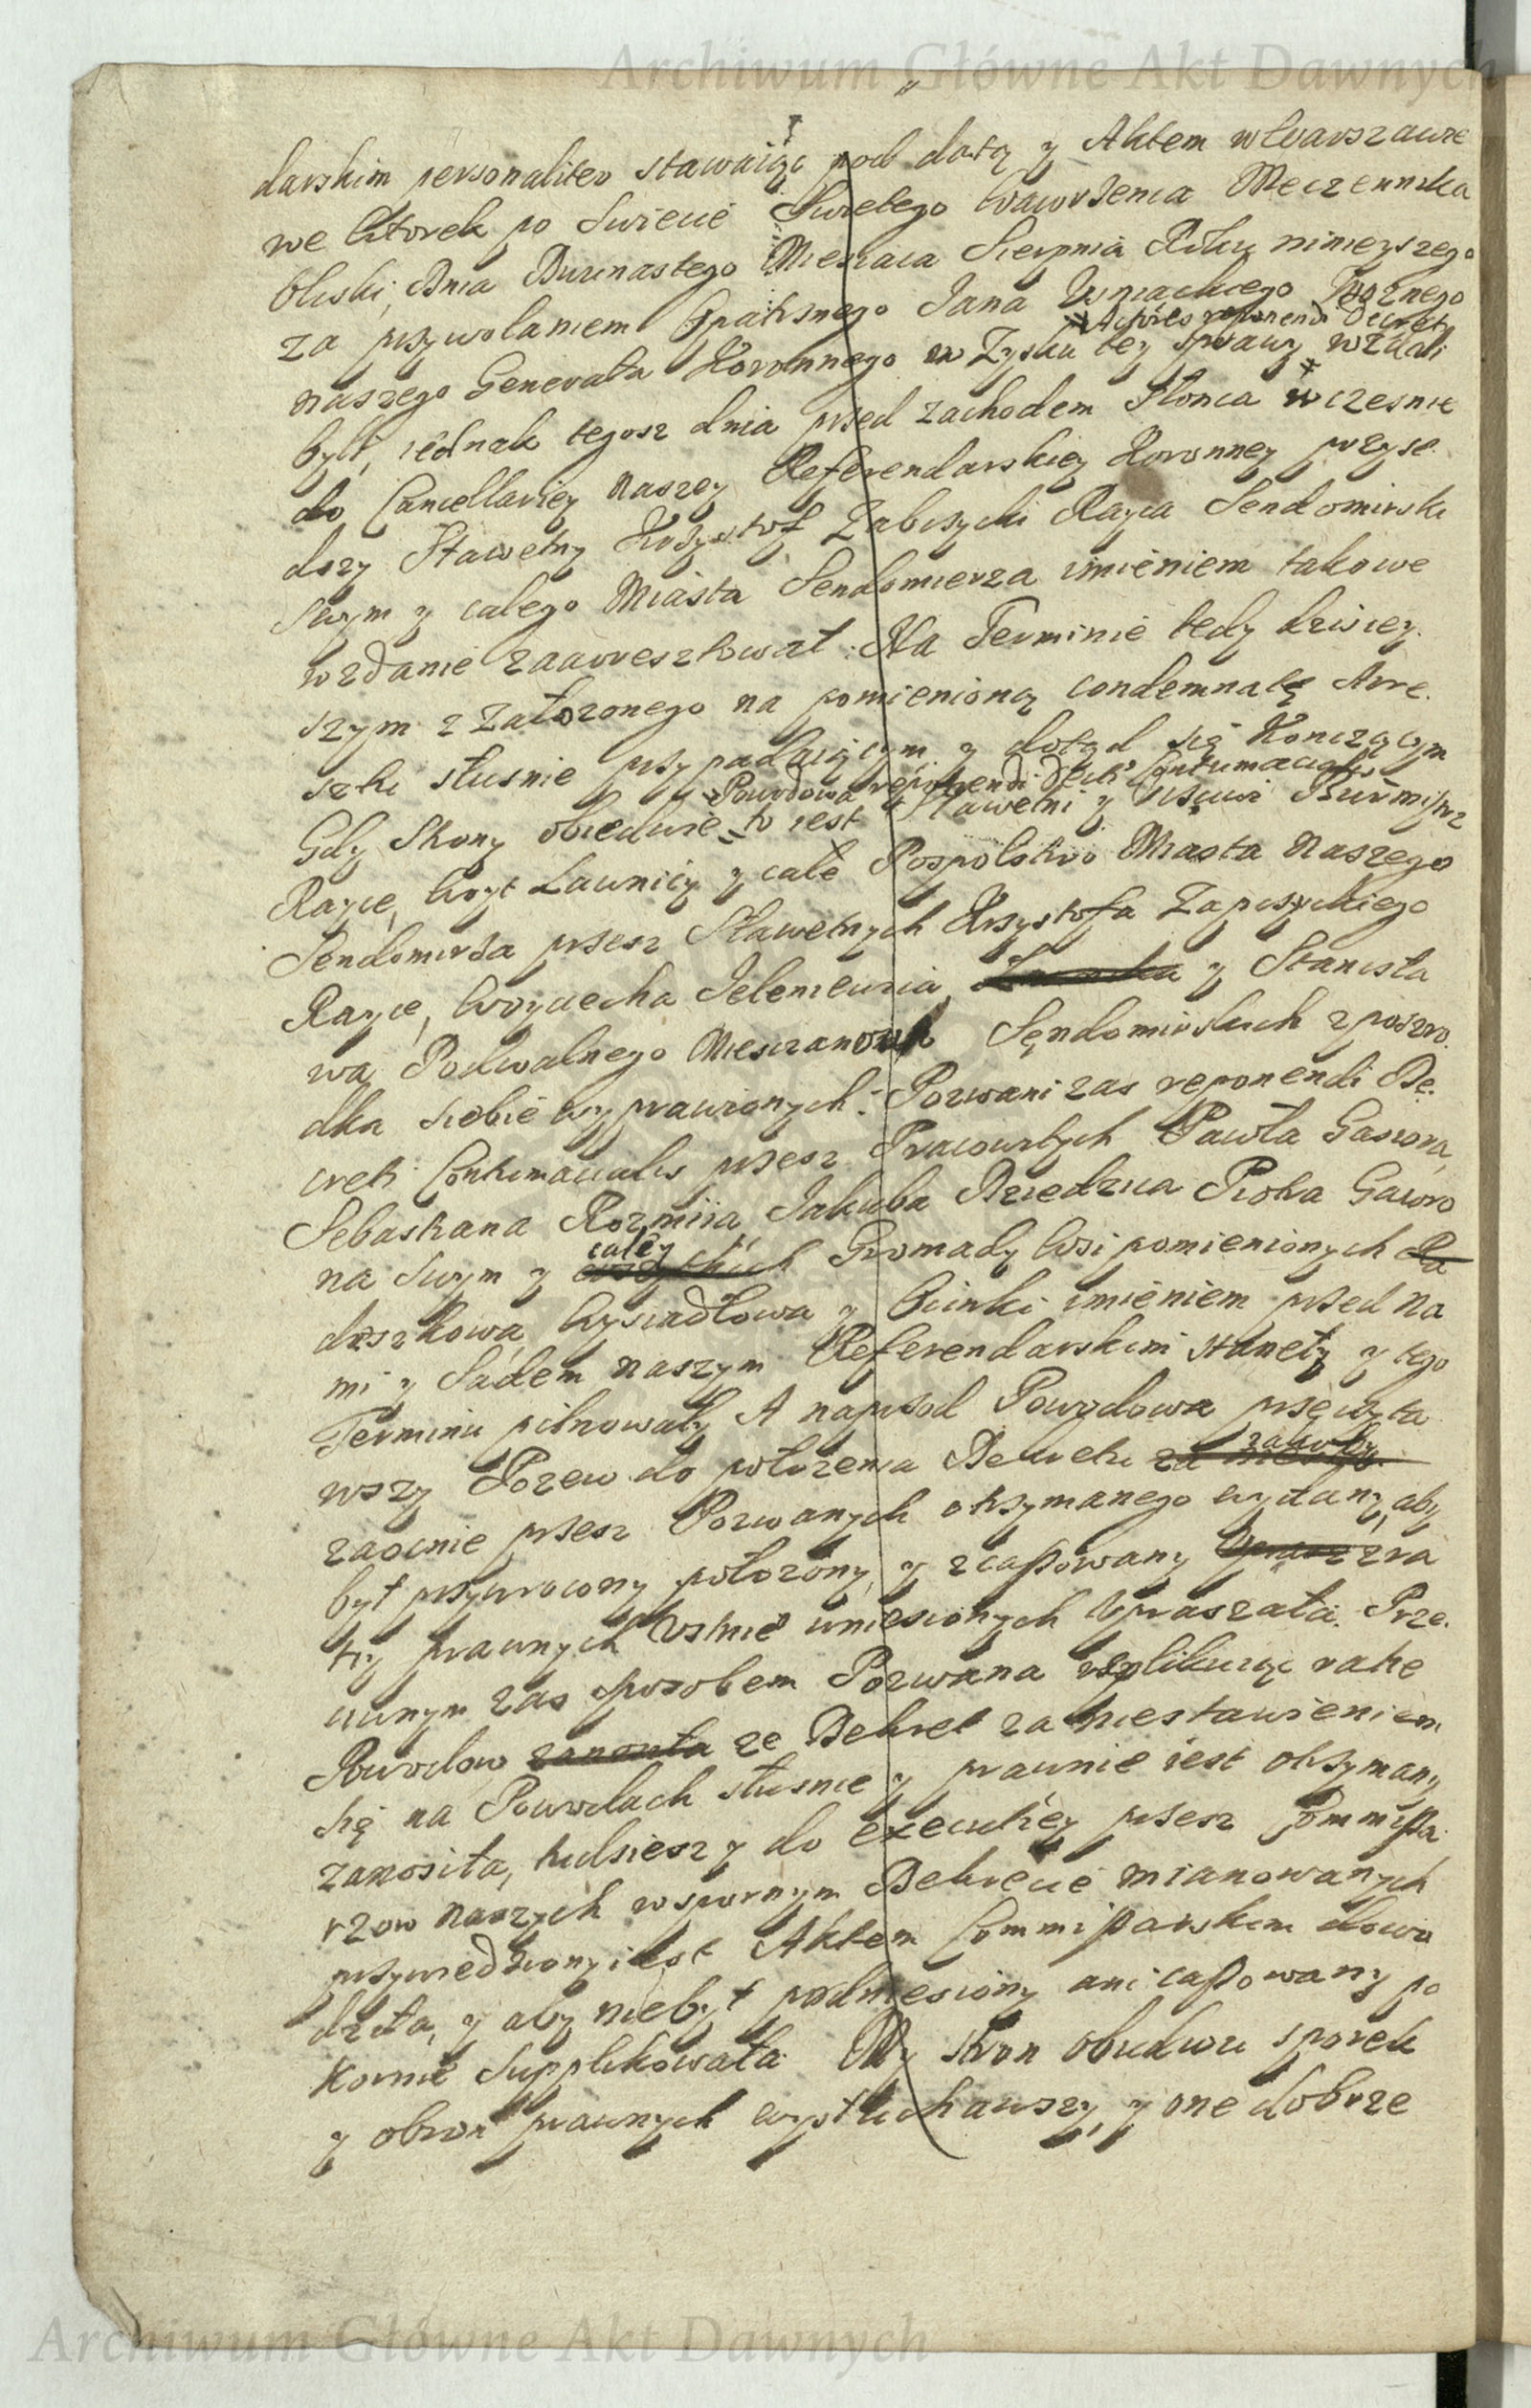 Archiwum Główne Akt Dawnych
darskim personaliter stawaiąc pod datą y Aktem w Warszawie
we Wtorek po Swiecie Swietego Wawrzenca Meczennika
bliski, Dnia Dwunastego Miesiaca Sierpnia Roku ninieyszego
za przywolaniem Opatrznego Jana Woznego
Actores reponendi Decreti
naszego Generała Koronnego w Zysku tey sprawy wzdali
byli, iednak tegosz dnia przed zachodem Słonca wczesnie
do Cancellariey Naszey Referendarskiey Koronney przyse.
dszy Sławetny Krzysztof Zabczycki Rayca Sendomirski
Swym y całego Miasta Sendomierza imieniem takowe
wzdanie zaarresztował. Na Terminie tedy dzisiey.
szym z Załozonego na pomienioną condemnatę Arre.
sztu słusnie przypadaiącym y dotąd się Konczącym
Powodowa reponendi Decreti Contumacialis
Gdy Strony obiedwie to iest Sławetni y Burmistrz
Rayce, Woyt Ławnicy y całe Pospolstwo Miasta Naszego
Sendomirza przesz Sławetnych Krzysztofa Zapczyckiego
Rayce, Woyciecha Jeleniewica y Stanisła
wa Podwalnego Miesczanow Sendomirskich z posrzo.
dka siebie wyprawionych: Pozwani zas reponendi De.
creti Contumacialis przesz Pracowitych Pawła Gawrona,
Sebastiana Rozmiia, Jakuba Dziedzica Piotra Gawro
całey
na Swym y wszytkich Gromady Wsi pomienionych Ra
doszkowa, Wysiadłowa y Ocinki imieniem przed Na
mi y Sądem naszym Referendarskim stanęły y tego
Terminu pilnowały. A naprzod Powodowa przeczyta
wszy Pozew do połozenia Dekretu
zaocnie przesz Pozwanych otrzymanego wydany, aby
był przywrocony połozony y zcassowany zra
tiy prawnych Ustnie wniesionych Upraszała. Prze.
ciwnym zas sposobem Pozwana replikuiąc ratie
Powodow zanosiła ze Dekret za niestawieniem
się na Powodach słusnie y prawnie iest otrzymany
zanosiła, tudziesz y do executiey przesz Commissa
rzow Naszych w spornym Dekrecie mianowanych
przywiedziony iest Aktem Commissarskim dowo
dziła, y aby niebył podniesiony ani cassowany po
kornie Supplikowała. My stron obudwu sporek
y obron prawnych wysłuchawszy, y one dobrze
Archiwum Główne Akt Dawnych